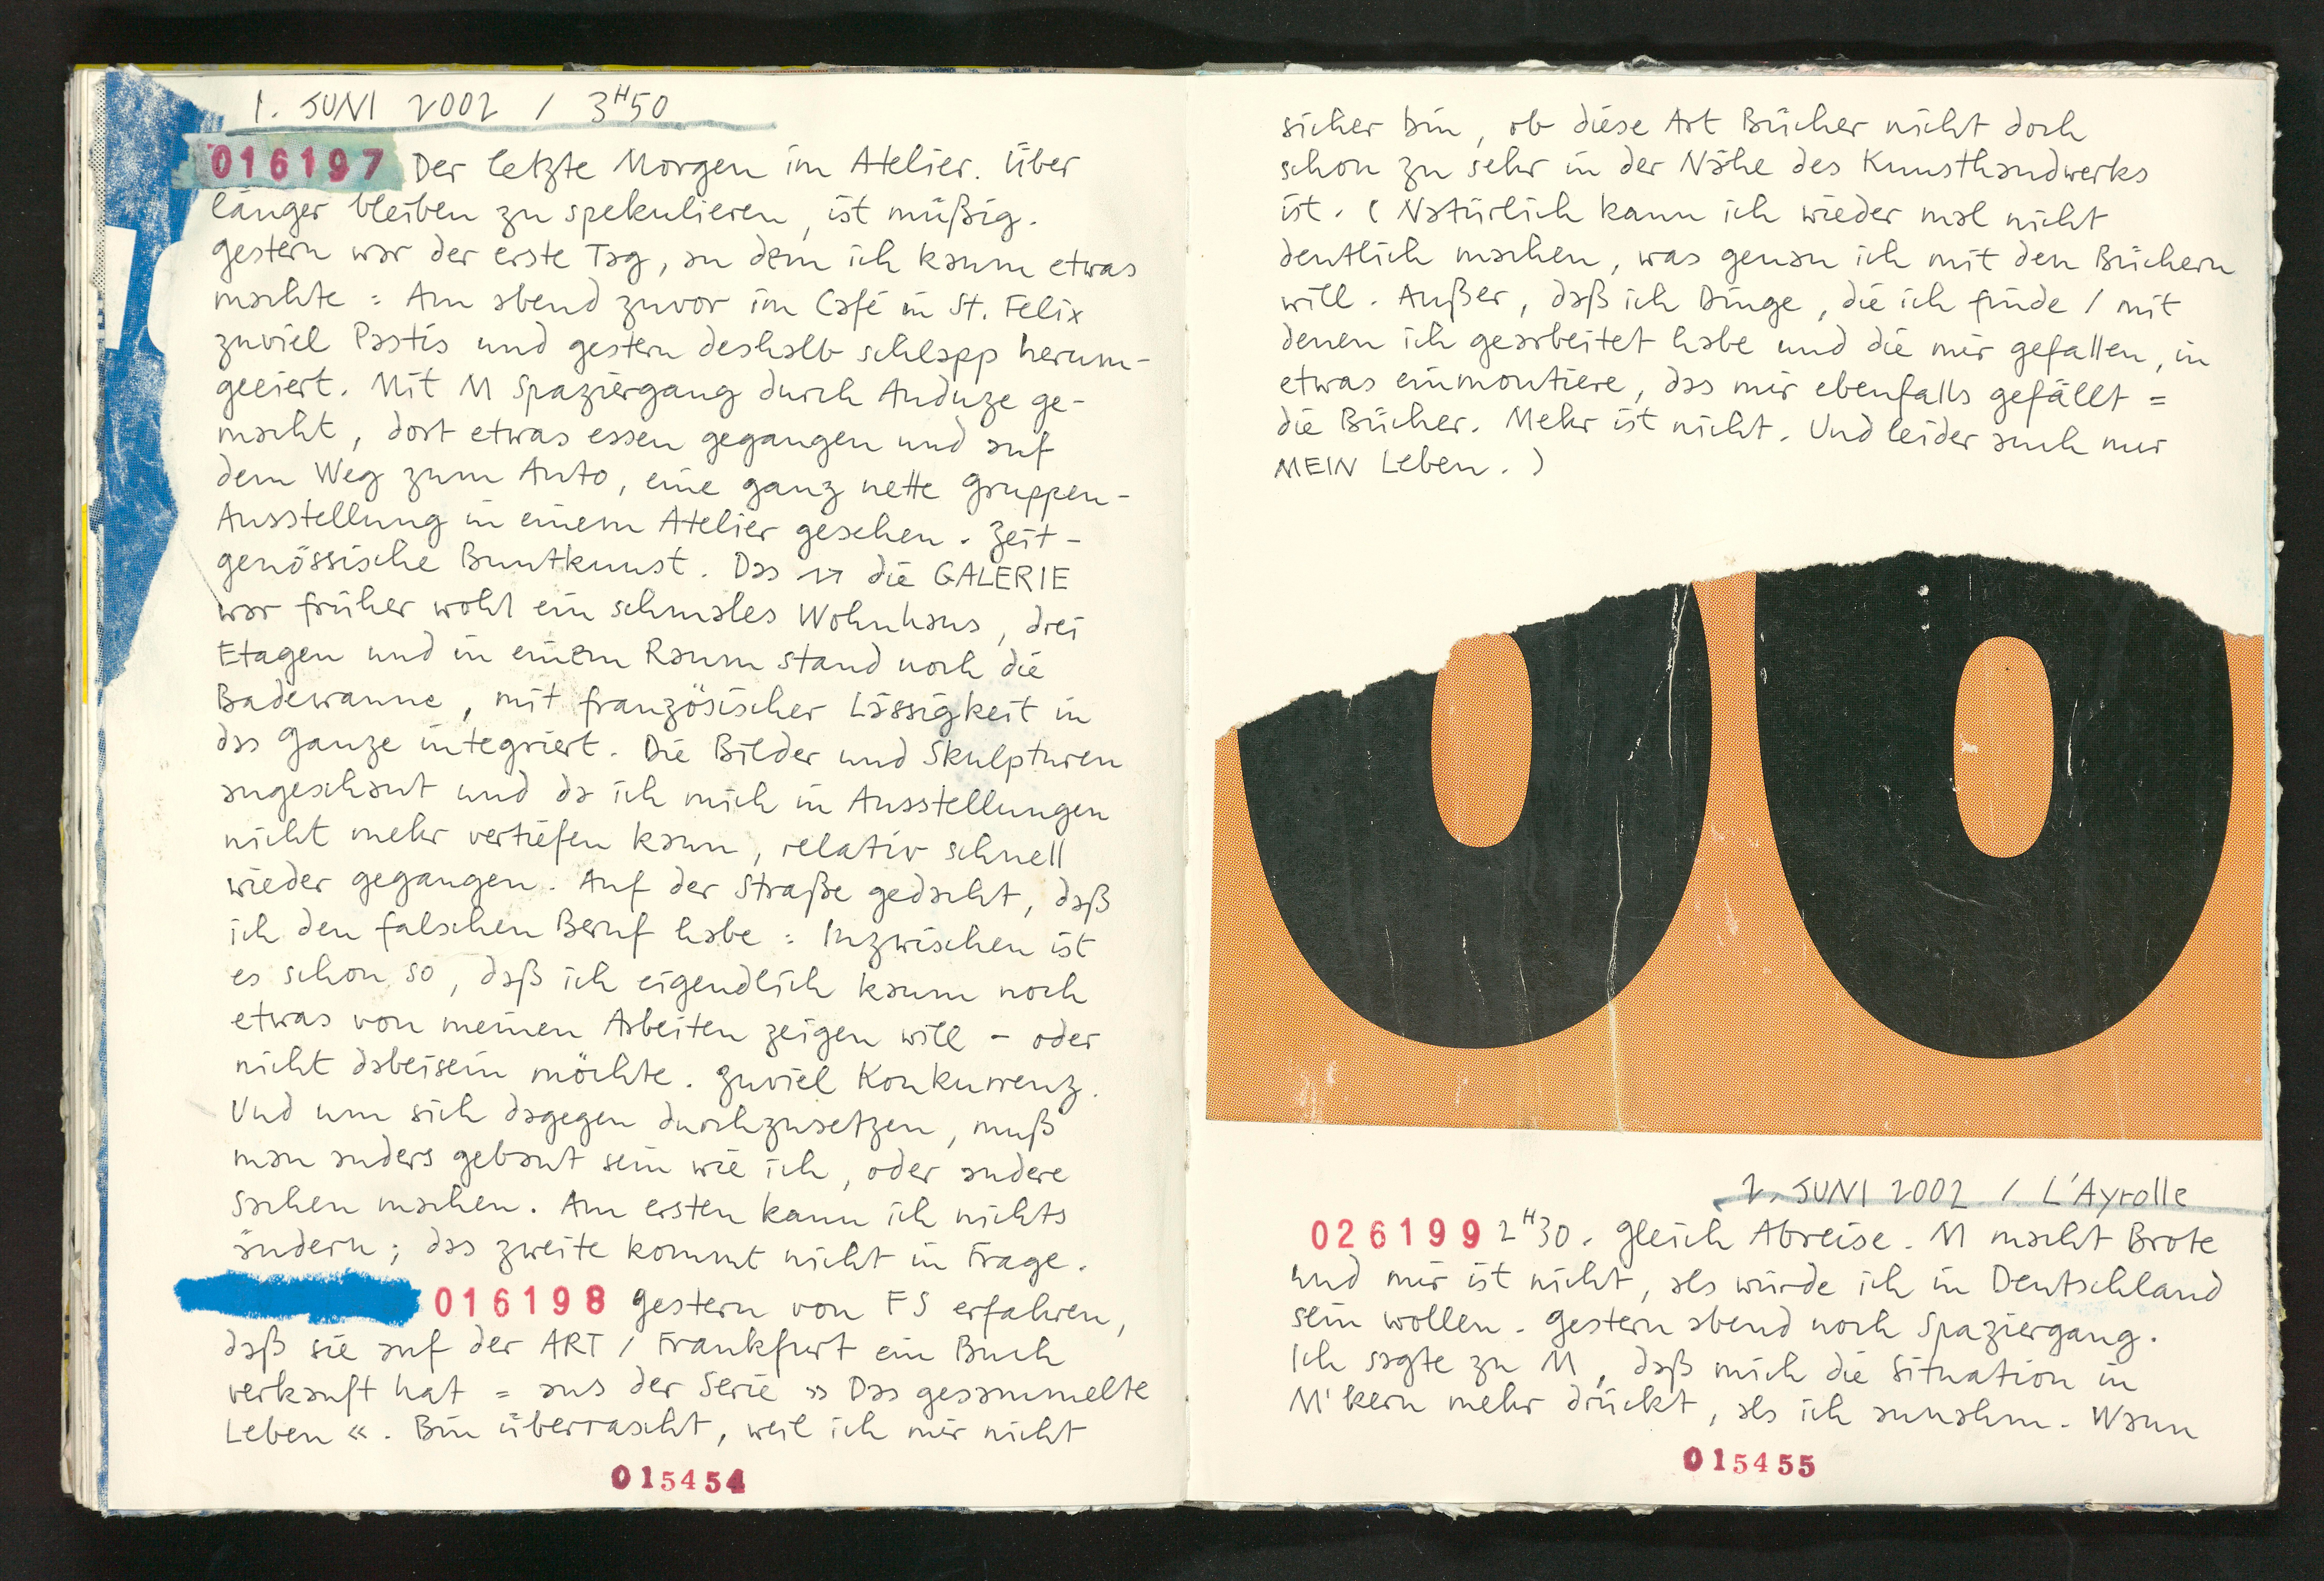 1. JUNI 2002 / 3H50
016197 Der letzte Morgen im Atelier. Über
länger bleiben zu spekulieren, ist müßig.
Gestern war der erste Tag, an dem ich kaum etwas
machte = Am abend zuvor im Café in St. Felix
zuviel Pastis und gestern deshalb schlapp herum-
geeiert. Mit M Spaziergang durch Anduze ge-
macht, dort etwas essen gegangen und auf
dem Weg zum Auto, eine ganz nette Gruppen-
Ausstellung in einem Atelier gesehen. Zeit-
genössische Buntkunst. Das → die GALERIE
war früher wohl ein schmales Wohnhaus, drei
Etagen und in einem Raum stand noch die
Badewanne, mit französischer Lässigkeit in
das Ganze integriert. Die Bilder und Skulpturen
angeschaut und da ich mich in Ausstellungen
nicht mehr vertiefen kann, relativ schnell
wieder gegangen. Auf der Straße gedacht, daß
ich den falschen Beruf habe = Inzwischen ist
es schon so, daß ich eigendlich kaum noch
etwas von meinen Arbeiten zeigen will – oder
nicht dabeisein möchte. Zuviel Konkurrenz.
Und um sich dagegen durchzusetzen, muß
man anders gebaut sein wie ich, oder andere
Sachen machen. Am ersten kann ich nichts
ändern; das zweite kommt nicht in Frage.
016198 Gestern von FS erfahren,
daß sie auf der ART / Frankfurt ein Buch
verkauft hat = aus der Serie »Das gesammelte
Leben«. Bin überrascht, weil ich mir nicht
015454
sicher bin, ob diese Art Bücher nicht doch
schon zu sehr in der Nähe des Kunsthandwerks
ist. (Natürlich kann ich wieder mal nicht
deutlich machen, was genau ich mit den Büchern
will. Außer, daß ich Dinge, die ich finde / mit
denen ich gearbeitet habe und die mir gefallen, in
etwas einmontiere, das mir ebenfalls gefällt =
die Bücher. Mehr ist nicht. Und leider auch nur
MEIN Leben.)
2. JUNI 2002 / L'Ayrolle
026199 2H30. Gleich Abreise. M macht Brote
und mir ist nicht, als würde ich in Deutschland
sein wollen. Gestern abend noch Spaziergang.
Ich sagte zu M, daß mich die Situation in
M'kern mehr drückt, als ich annahm. Wann
015455